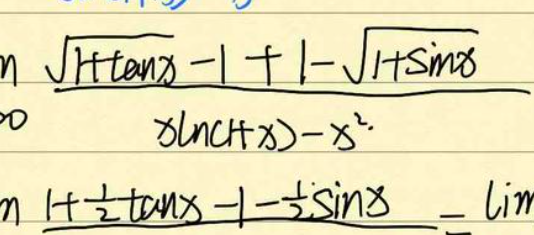 √(1+tanx) -1 + 1-√(1+sinx)
xln(1+x)-x².
1+½tanx-1-½sinx = lim